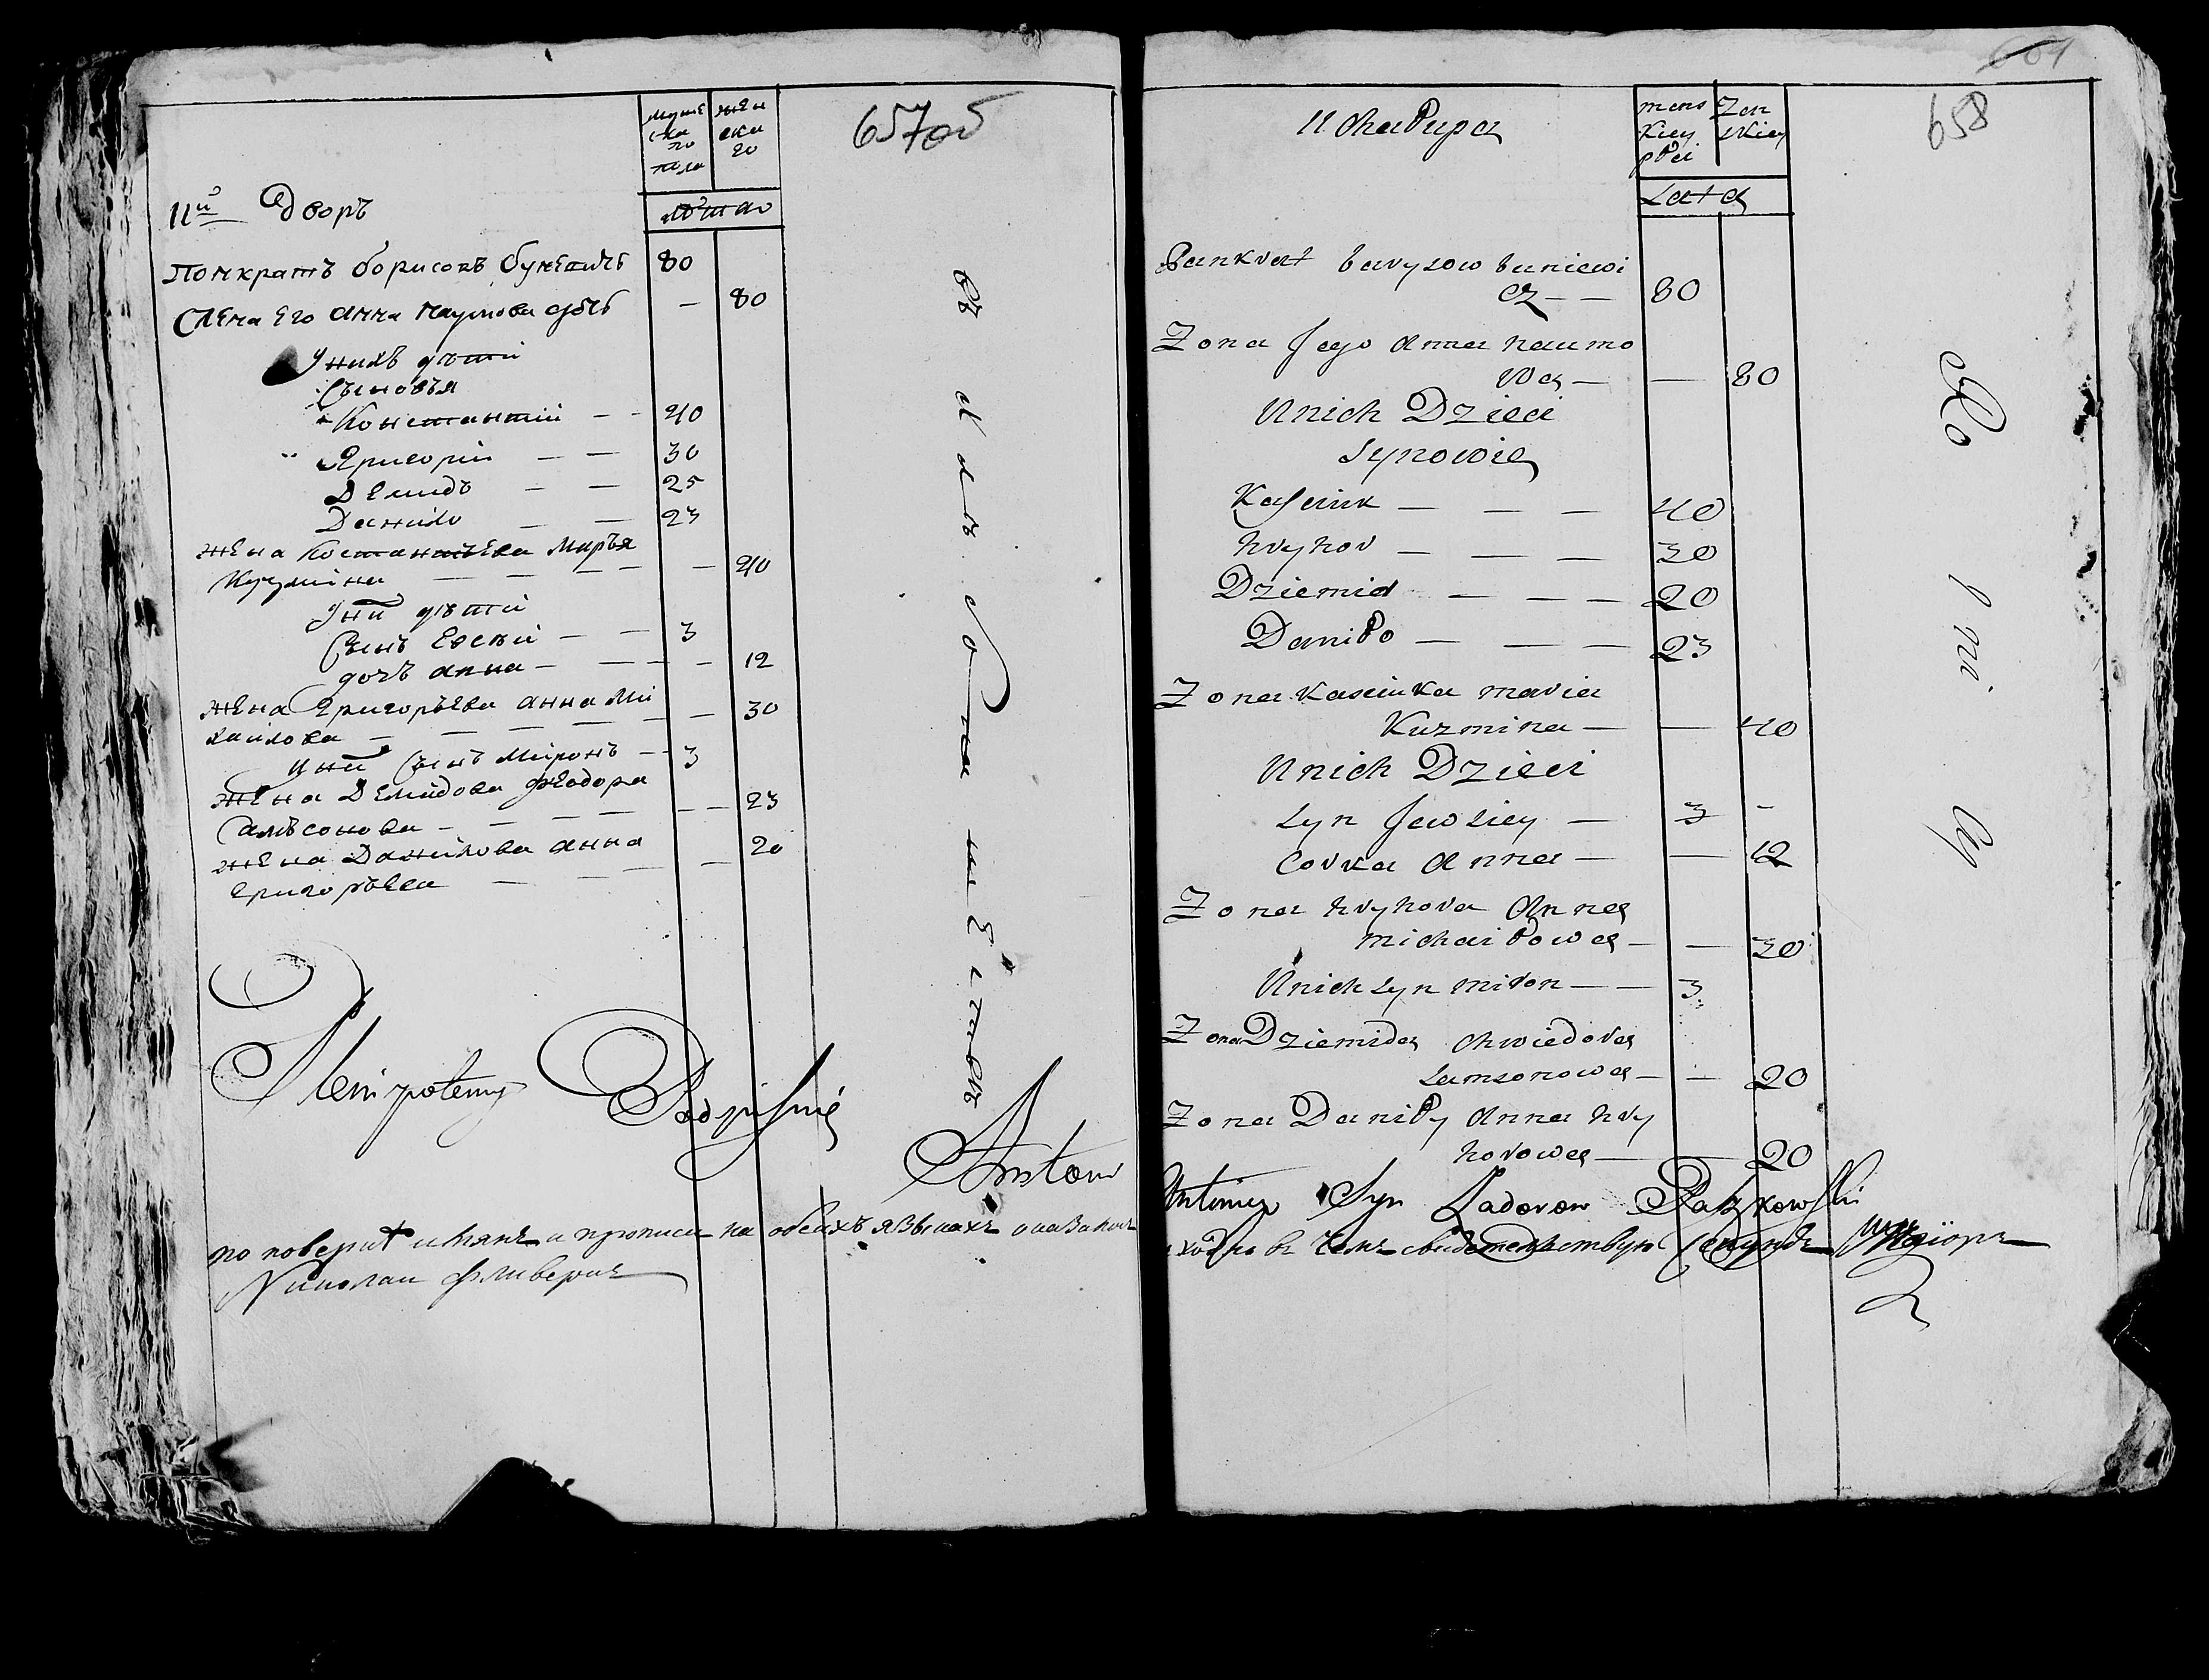 657об
муже
ска
го
пола
жен
ска
го
лѣта
11й дворъ
Понкратъ борисовъ буневичъ 80
Жена Его Анна Наумова — 80
У нихъ дѣти
Сыновъя
Константiй — — 40
Григорiй — — 30
Демидъ — — 25
Данило — — 23
жена Костантьева Маръя
Кузмiна — — — — — 40
У ниû дѣти
Сынъ Евсѣй — — 3
дочъ анна — — — — 12
Жена Григоръева анна Ми
хаилова — — — — — — 30
У ниû Сынъ Миронъ — — 3
Жена Демидова Феодора
Самъсонова — — — — — — 23
жена Данилова анна
Григоръева — — — — 20
Plenipotenty Podpisuię
Antoni
по поверит и прописи на обеихъ языкахъ оказалось
Николаи
601
658
11 Chałupa
mens
kiey
płci
Zen
skiey
Lata
Pankrat barysow buniewi
cz — — 80
Zona Jego Anna naumo
wa — — 80
U nich Dzieci
Synowie
Kasciuk — — — 40
hryhor — — — 30
Dziemid — — — 20
Daniło — — — 23
Zona Kasciuka maria
Kuzmina — — 40
U nich Dzieci
Syn Jewsiey — 3 -
Corka Anna — — 12
Zona hryhora Anna
michaiłowa — — 30
U nich Syn miron — — 3
Zona Dziemida Chwiedora
Samsonowa — — 20
Zona Daniły Anna hry
horowa — — 20
Syn
сходно въ чемъ свидетельствую Секундъ Маiоръ